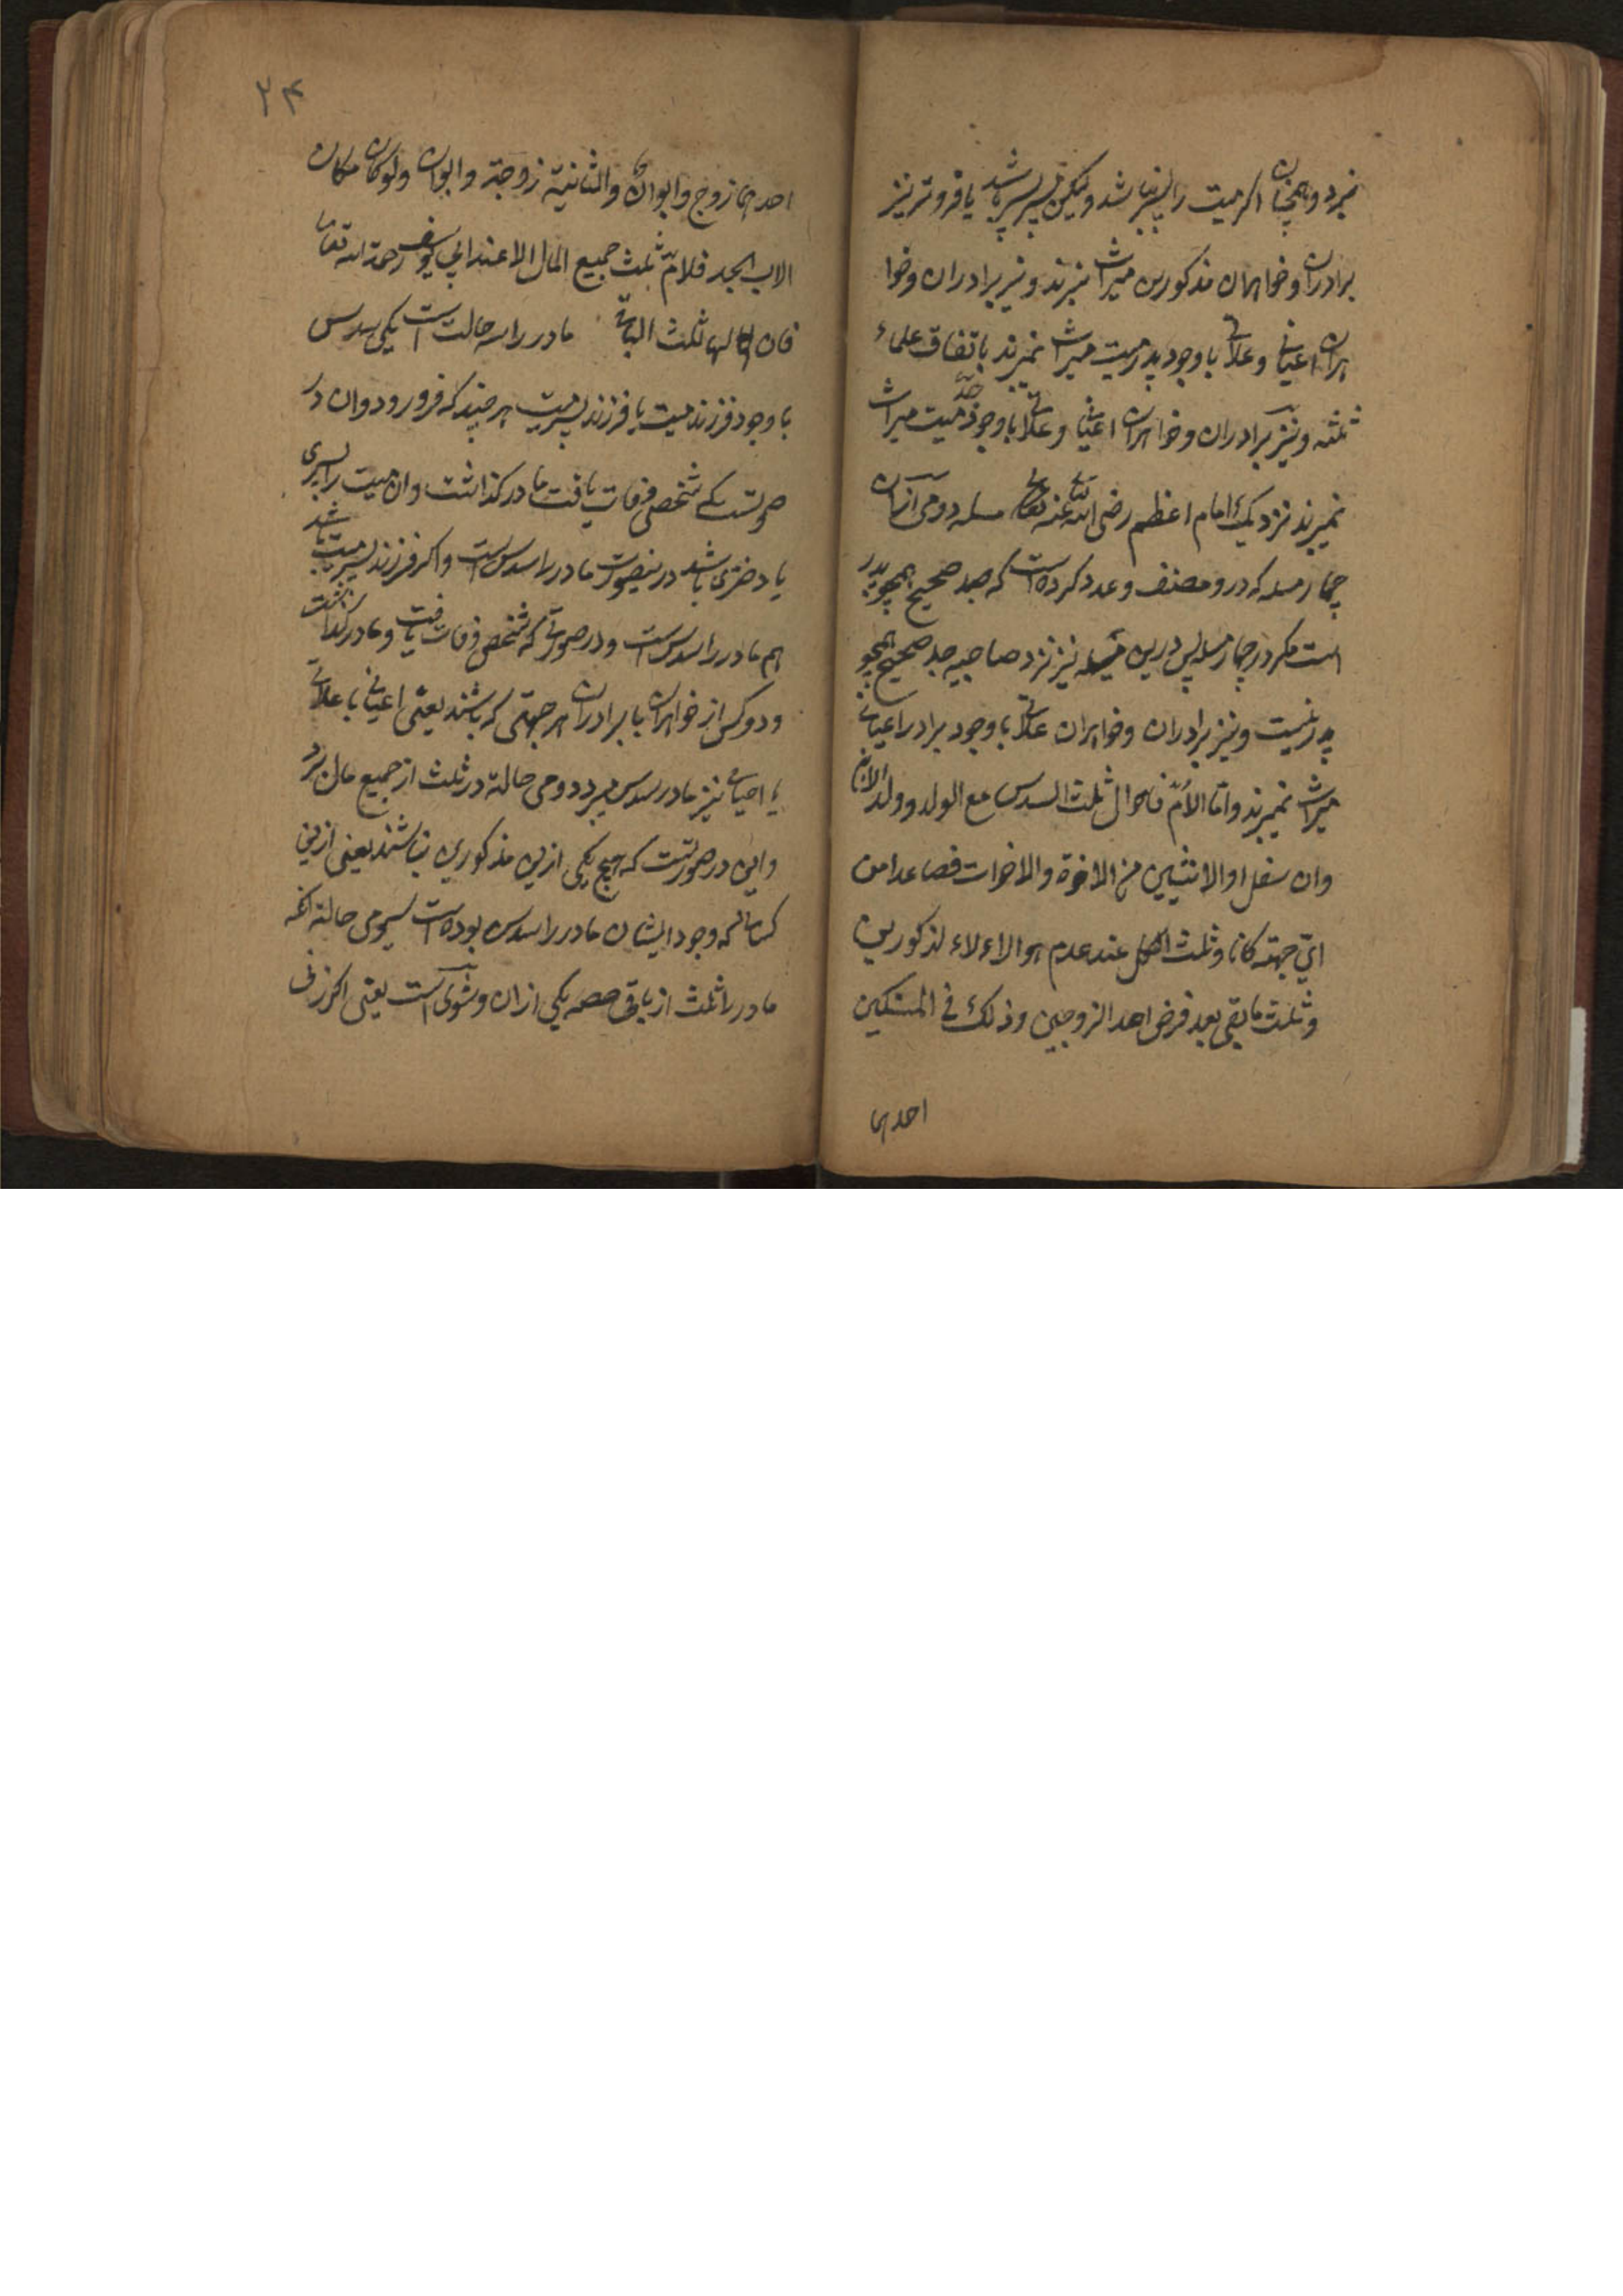 نبرد و همچنان اکر میت را پسر نباشد ولیکن پسر پسر باشد یا فروتر نیز
برادران و خواهران مذکورین میراث نبرند و نیز برادران و خوا
هران اعیانی و علاتی باوجود پدر میت میراث نمیبرند باتفاق علماء
ثلثه و نیز برادران و خواهران اعیانی و علاتی باوجود جد میت میراث
نمیبرند نزدیک امام اعظم رضی الله تعالی عنه مسله دومی آن
چهار مسله که درو مصنف وعده کرده است که جد صحیح همچو پدر
است مکر در چهار مسله پس درین مسله نیز نزد صاحبیه جد صحیح همچو
پدر نیست و نیز برادران و خواهران علاتی باوجود برادر اعیانی
میراث نمیبرند و اما الأمّ فاحوال ثلث السدس مع الولد و ولد الابن
وان سفل او الاثنین من الاخوة والاخوات فصاعدا من
ایّ جهة کانا و ثلث الکل عند عدم هوالاءلاء لذکورین
و ثلث مابقی بعد فرض احد الزوجین و ذلک فی المسئلتین
احدیها
۲۴
احدیها زوج وابوان والثانیة زوجة وابوان ولو کان مکان
الاب الجد فلامّ ثلث جمیع المال الا عند ابی یوسف رحمة الله تعالی
فان لها ثلث الباقی مادر را سه حالت است یکی سدس
باوجود فرزند میت یا فرزند پسر میت هر چند که فرو رود و ان در
صورتست که شخصی وفات یافت مادر کذاشت وان میت را پسری
یا دختری باشد درینصورت مادر را سدس است واکر فرزند پسر میت باشد
هم مادر را سدس است و در صورتی که شخصی وفات یافت و مادر کذاشت
و دو کس از خواهران یا برادران هر جهتی که باشند یعنی اعیانی یا علاتی
یا اخیافی نیز مادر سدس میبرد دومی حالة در ثلث از جمیع مال برد
واین در صورتست که هیچ یکی ازین مذکورین نباشند یعنی ازین
کسانکه وجود ایشان مادر را سدس بوده است سیومی حالة انکه
مادر را ثلث از باقی حصه یکی از زن و شوی است یعنی اکر زنی